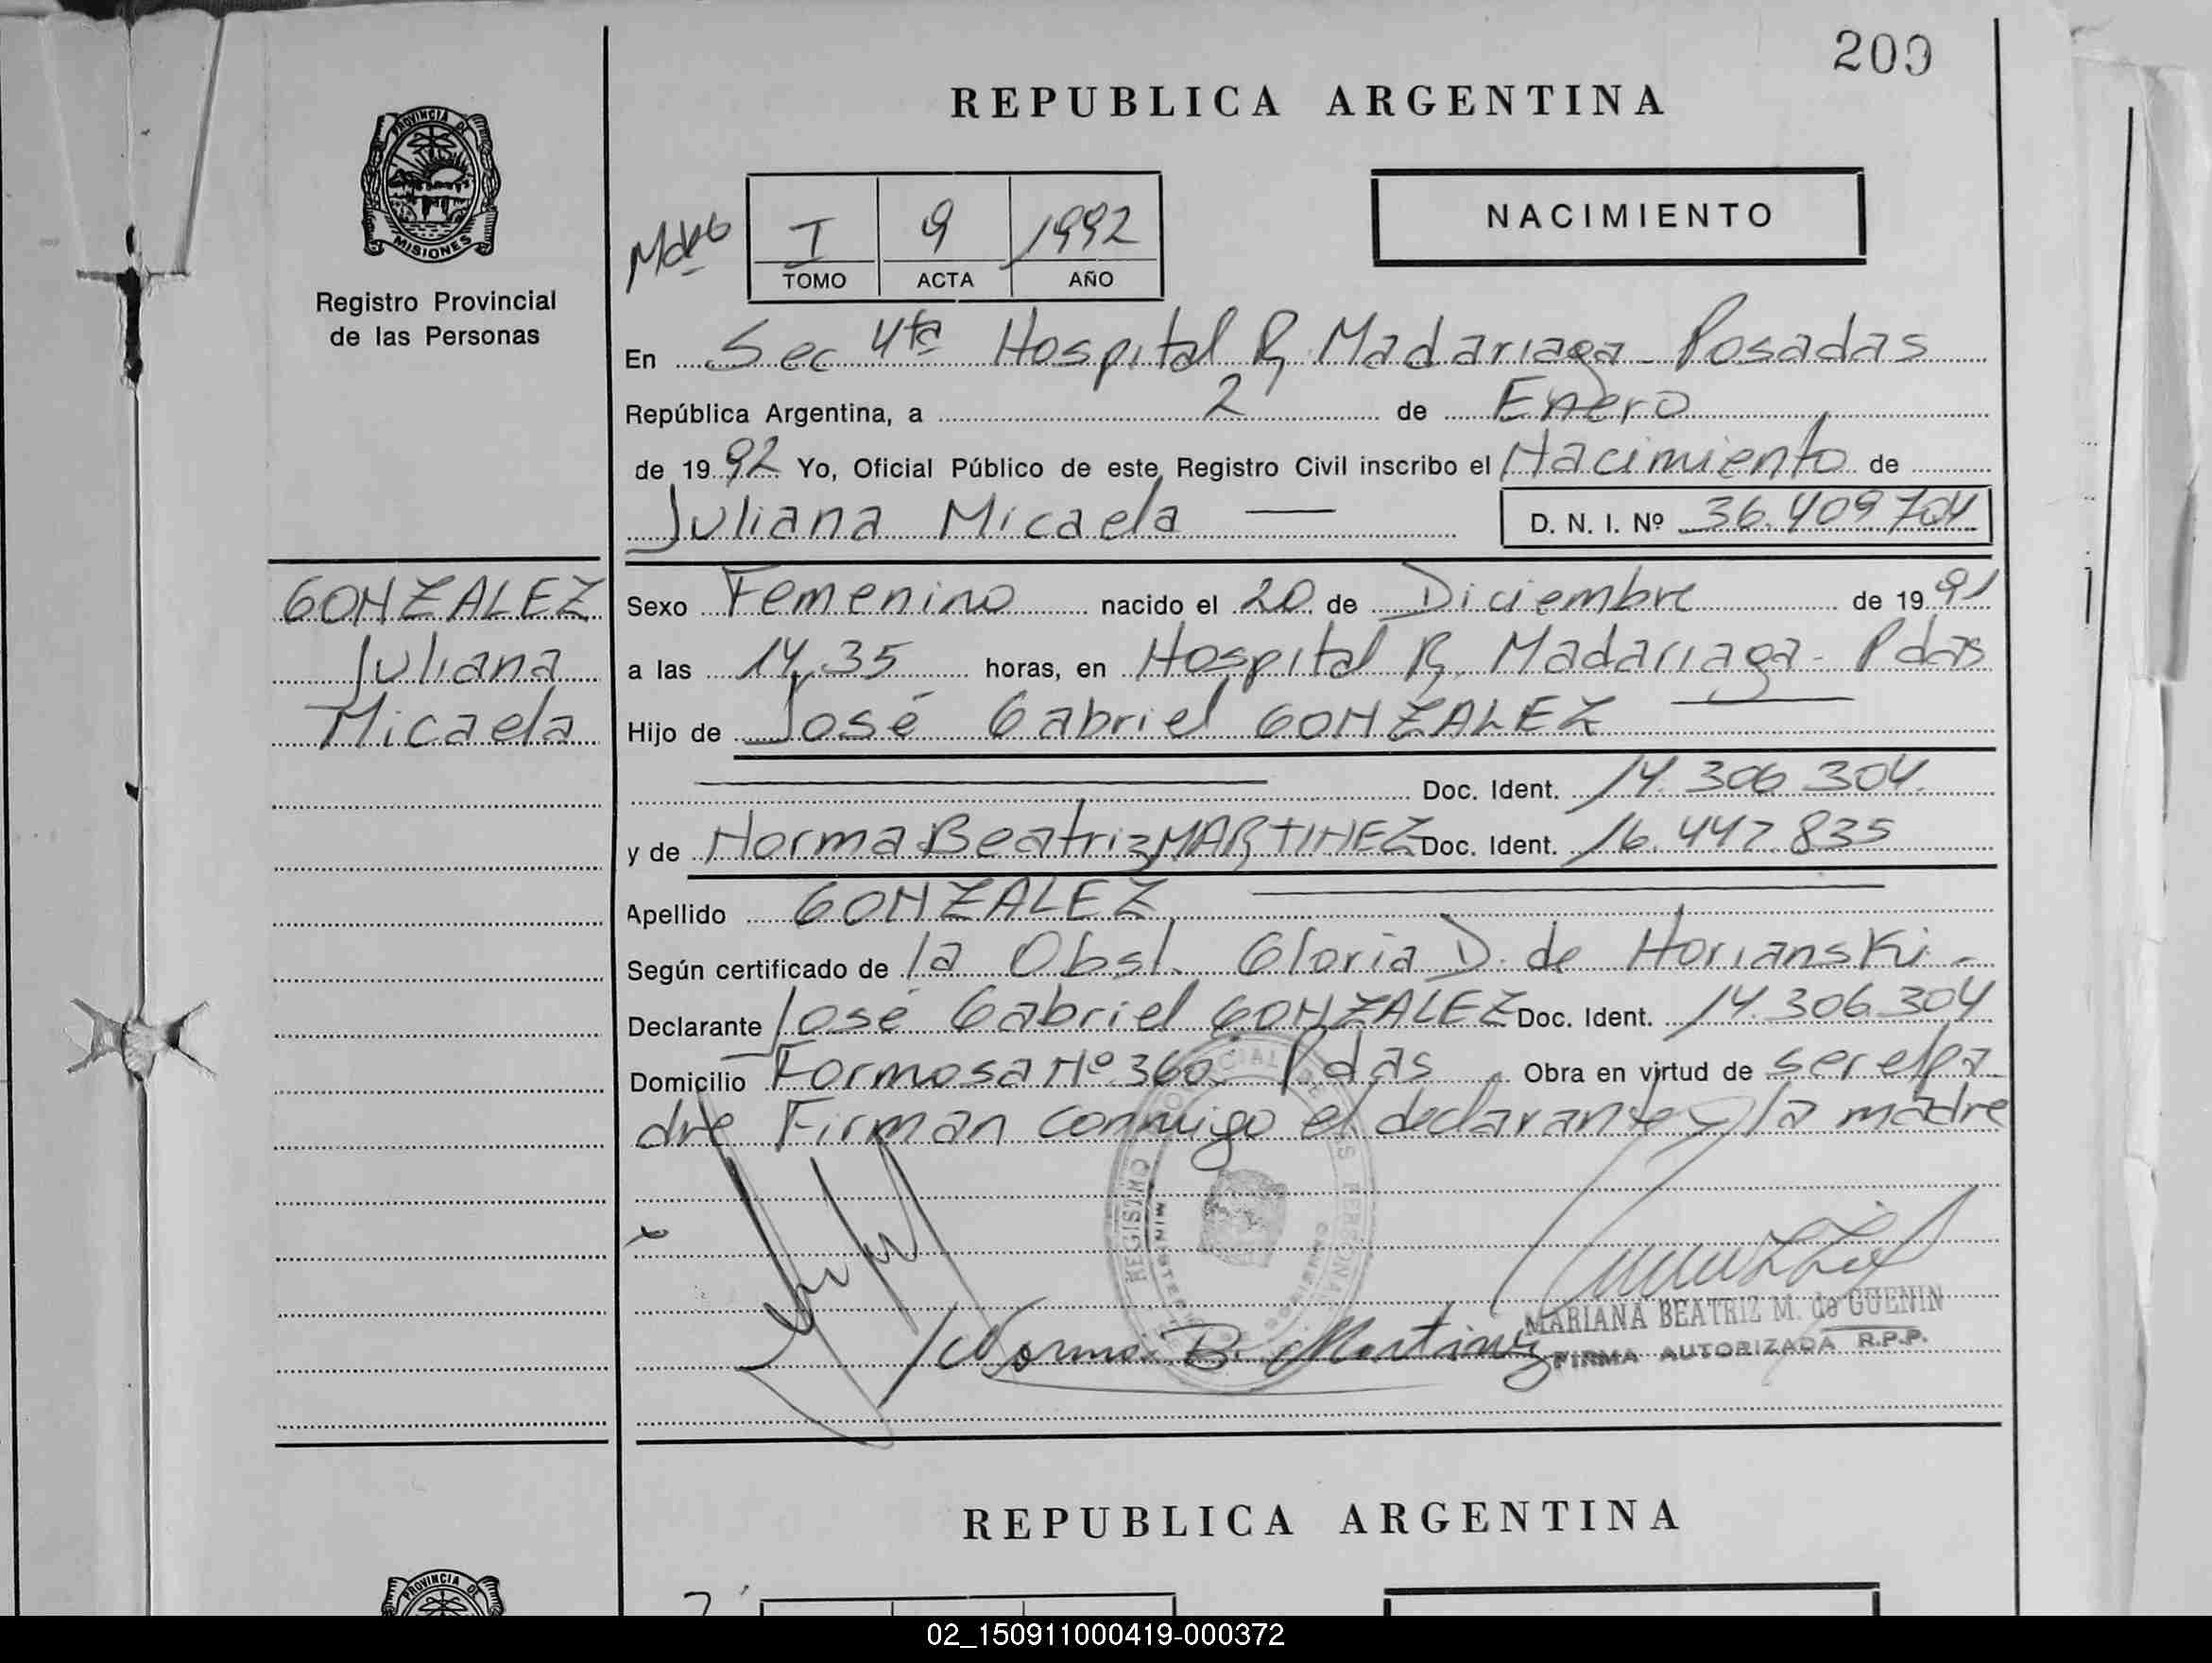 209
REPUBLICA ARGENTINA
PROVINCIA DE
MISIONES
Registro Provincial
de las Personas
I 9 1992
TOMO ACTA AÑO
NACIMIENTO
En Sec 4ta Hospital R. Madariaga - Posadas
República Argentina, a 2 de Enero
de 1992 Yo, Oficial Público de este Registro Civil inscribo el Nacimiento de
Juliana Micaela — D. N. I. Nº 36.409704
GONZALEZ
Juliana
Micaela
Sexo Femenino nacido el 20 de Diciembre de 1991
a las 14,35 horas, en Hospital R. Madariaga - Pdas
Hijo de José Gabriel GONZALEZ
Doc. Ident. 14.306.304.
y de Norma Beatriz MARTINEZ Doc. Ident. 16.447.835
Apellido GONZALEZ
Según certificado de la Obst. Gloria D. de Horianski -
Declarante José Gabriel GONZALEZ Doc. Ident. 14.306.304
Domicilio Formosa Nº 360 Pdas Obra en virtud de ser el pa
dre Firman conmigo el declarante y la madre
REGISTRO PROVINCIAL DE LAS PERSONAS
MINISTERIO DE GOBIERNO
MARIANA BEATRIZ M. de GUENIN
FIRMA AUTORIZADA R.P.P.
Norma B. Martinez
REPUBLICA ARGENTINA
PROVINCIA DE
02_150911000419-000372